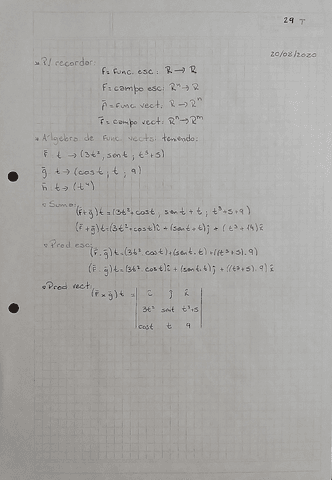 29 T
20/08/2020
• P/ recordar:
F = Func. esc: R → R
F = campo esc: Rⁿ → R
r̄ = Func vect: R → Rⁿ
F̄ = campo vect: Rⁿ → Rᵐ
• Algebra de Func. vects. teniendo:
F̄ t → (3t², sent, t³+5)
ḡ t → (cost, t, 9)
h̄ t → (t⁴)
○ Suma:
(F̄+ḡ)t=(3t²+cost, sent + t, t³+5+9)
(F̄+ḡ)t=(3t²+cost)î + (sen t+t)ĵ + (t³+14)k̂
○ Prod esc:
(F̄ · ḡ)t=(3t² cost)+(sent · t)+((t³+5) · 9)
(F̄ · ḡ)t=(3t² cost)î + (sen t · t)ĵ + ((t³+5) · 9)k̂
○ Prod vect:
(F̄ × ḡ)t = | î ĵ k̂ |
| 3t² sent t³+5 |
| cost t 9 |